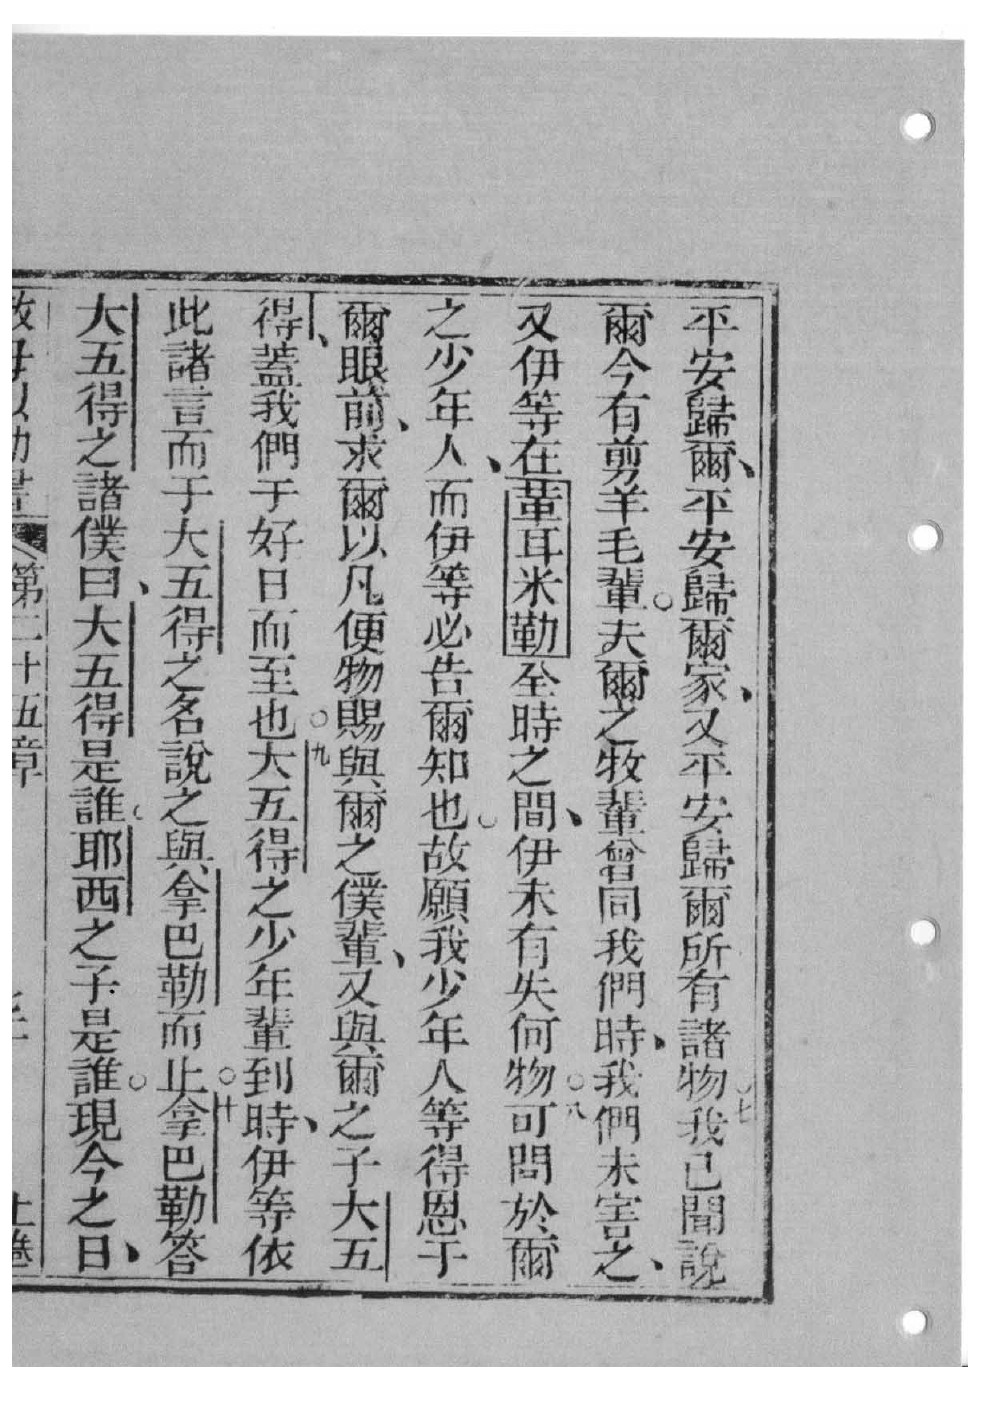 平安歸爾、平安歸爾家、又平安歸爾所有諸物○七我已聞說
爾今有剪羊毛輩○夫爾之牧輩曾同我們時、我們未害之、
又伊等在菫耳米勒至時之間、伊未有失何物○八可問於爾
之少年人、而伊等必告爾知也○故願我少年人等得恩于
爾眼前、求爾以凡便物賜與爾之僕輩、又與爾之子大五
得、蓋我們于好日而至也○九大五得之少年輩到時、伊等依
此諸言而于大五得之名說之與拿巴勒而止○十拿巴勒答
大五得之諸僕曰、大五得是誰○耶西之子是誰○現今之日、
第二十五章 上卷